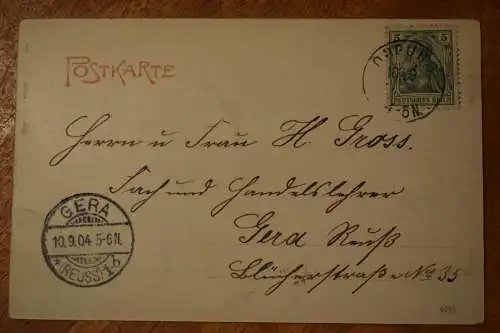 POSTKARTE
5 5
DEUTSCHES REICH
Herrn u Frau H. Gross.
Fach und Handelslehrer
Gera Reuß
Blücherstraße No 35
GERA
10.9.04 5-6N.
* (REUSS) 1.b